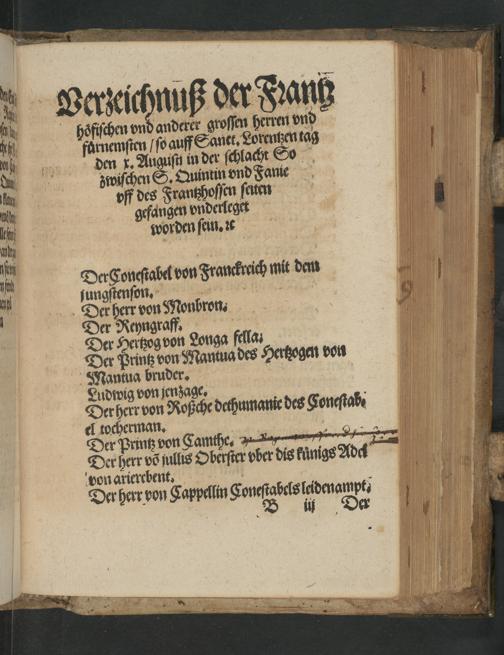 Verzeichnuß der Frantz
höfischen vnd anderer grossen herren vnd
fürnemsten / so auff Sanct. Lorentzen tag
den x. Augusti in der schlacht So
zwischen S. Quintin vnd Fanie
vff des Frantzhossen seiten
gefangen vnderleget
worden sein. ꝛc
Der Conestabel von Franckreich mit dem
jungstenson.
Der herr von Monbron.
Der Reyngraff.
Der Hertzog von Longa fella.
Der Printz von Mantua des Hertzogen von
Mantua bruder.
Ludwig von jenzage.
Der herr von Roßche dethumanie des Conestab⸗
el tocherman.
Der Printz von Camthe.
Der herr võ jullis Oberster vber dis künigs Adel
von arierebent.
Der herr von Cappellin Conestabels leidenampt.
B iij Der